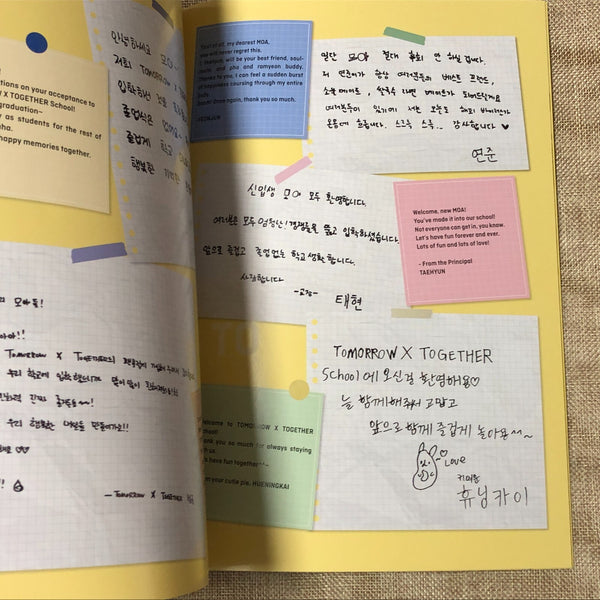 tions on your acceptance to
TOGETHER School!
graduation~
as students for the rest of
happy memories together.
안녕하세요
저희 TOMORROW X
졸업식은
즐겁게 학교
행복한
First of all, my dearest MOA,
you will never regret this.
will be your best friend, soul-
mate, and pho and ramyeon buddy.
Thanks to you, I can feel a sudden burst
of happiness coursing through my entire
body.
once again, thank you so much.
YEONJUN
일단 모아 절대 후회 안 하실 겁니다.
저 연준이가 항상 여러분들의 베스트 프렌드,
소울메이트, 쌀국수 라면 메이트가 되어드릴게요
여러분들이 있기에 저는 오늘도 행복 바이러스가
온몸에 흐릅니다. 스르륵 스륵.. 감사합니다 ♥
연준
신입생 모아 모두 환영합니다.
여러분은 모두 엄청난 경쟁률을 뚫고 입학하셨습니다.
앞으로 즐겁고 졸업없는 학교생활합시다.
사랑합니다
-교장-
태현
Welcome, new MOA!
You've made it into our school!
Not everyone can get in, you know.
Let's have fun forever and ever.
Lots of fun and lots of love!
- From the Principal
TAEHYUN
모아들!
TOMORROW X TOGETHER의
우리 학교에 입학했으니까 많이많이
우리 행복한 나날을 만들어가요!!
- TOMORROW X TOGETHER
elcome to TOMORROW X TOGETHER
School!
ank you so much for always staying
th us.
's have fun together~~
m your cutie pie, HUENINGKAI
TOMORROW X TOGETHER
School에 오신걸 환영해용♡
늘 함께해줘서 고맙고
앞으로 함께 즐겁게 놀아용~~
Love
귀여운
휴닝카이